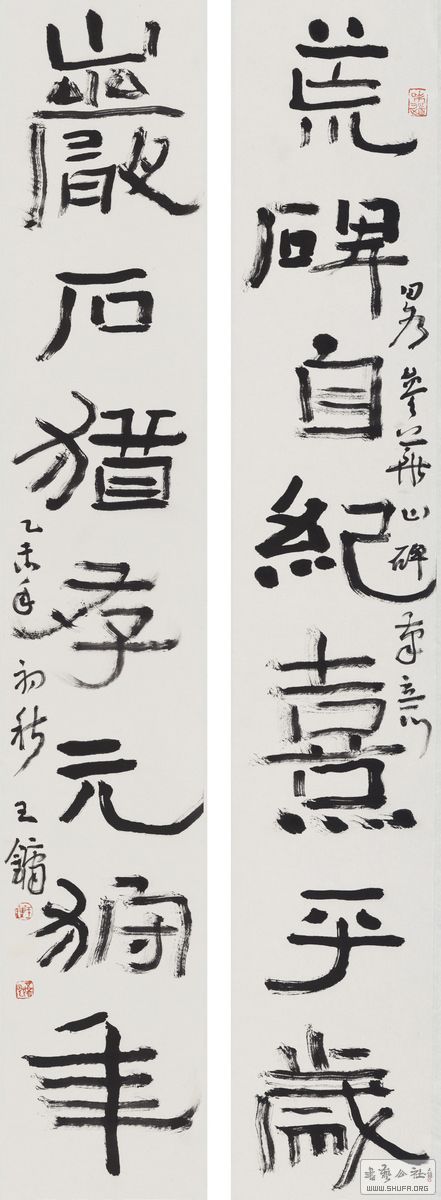 荒碑自紀熹平歲
畧參華山碑筆意
巖石猶存元狩年
乙未年初秋 王鏞
書藝公社
WWW.SHUFA.ORG